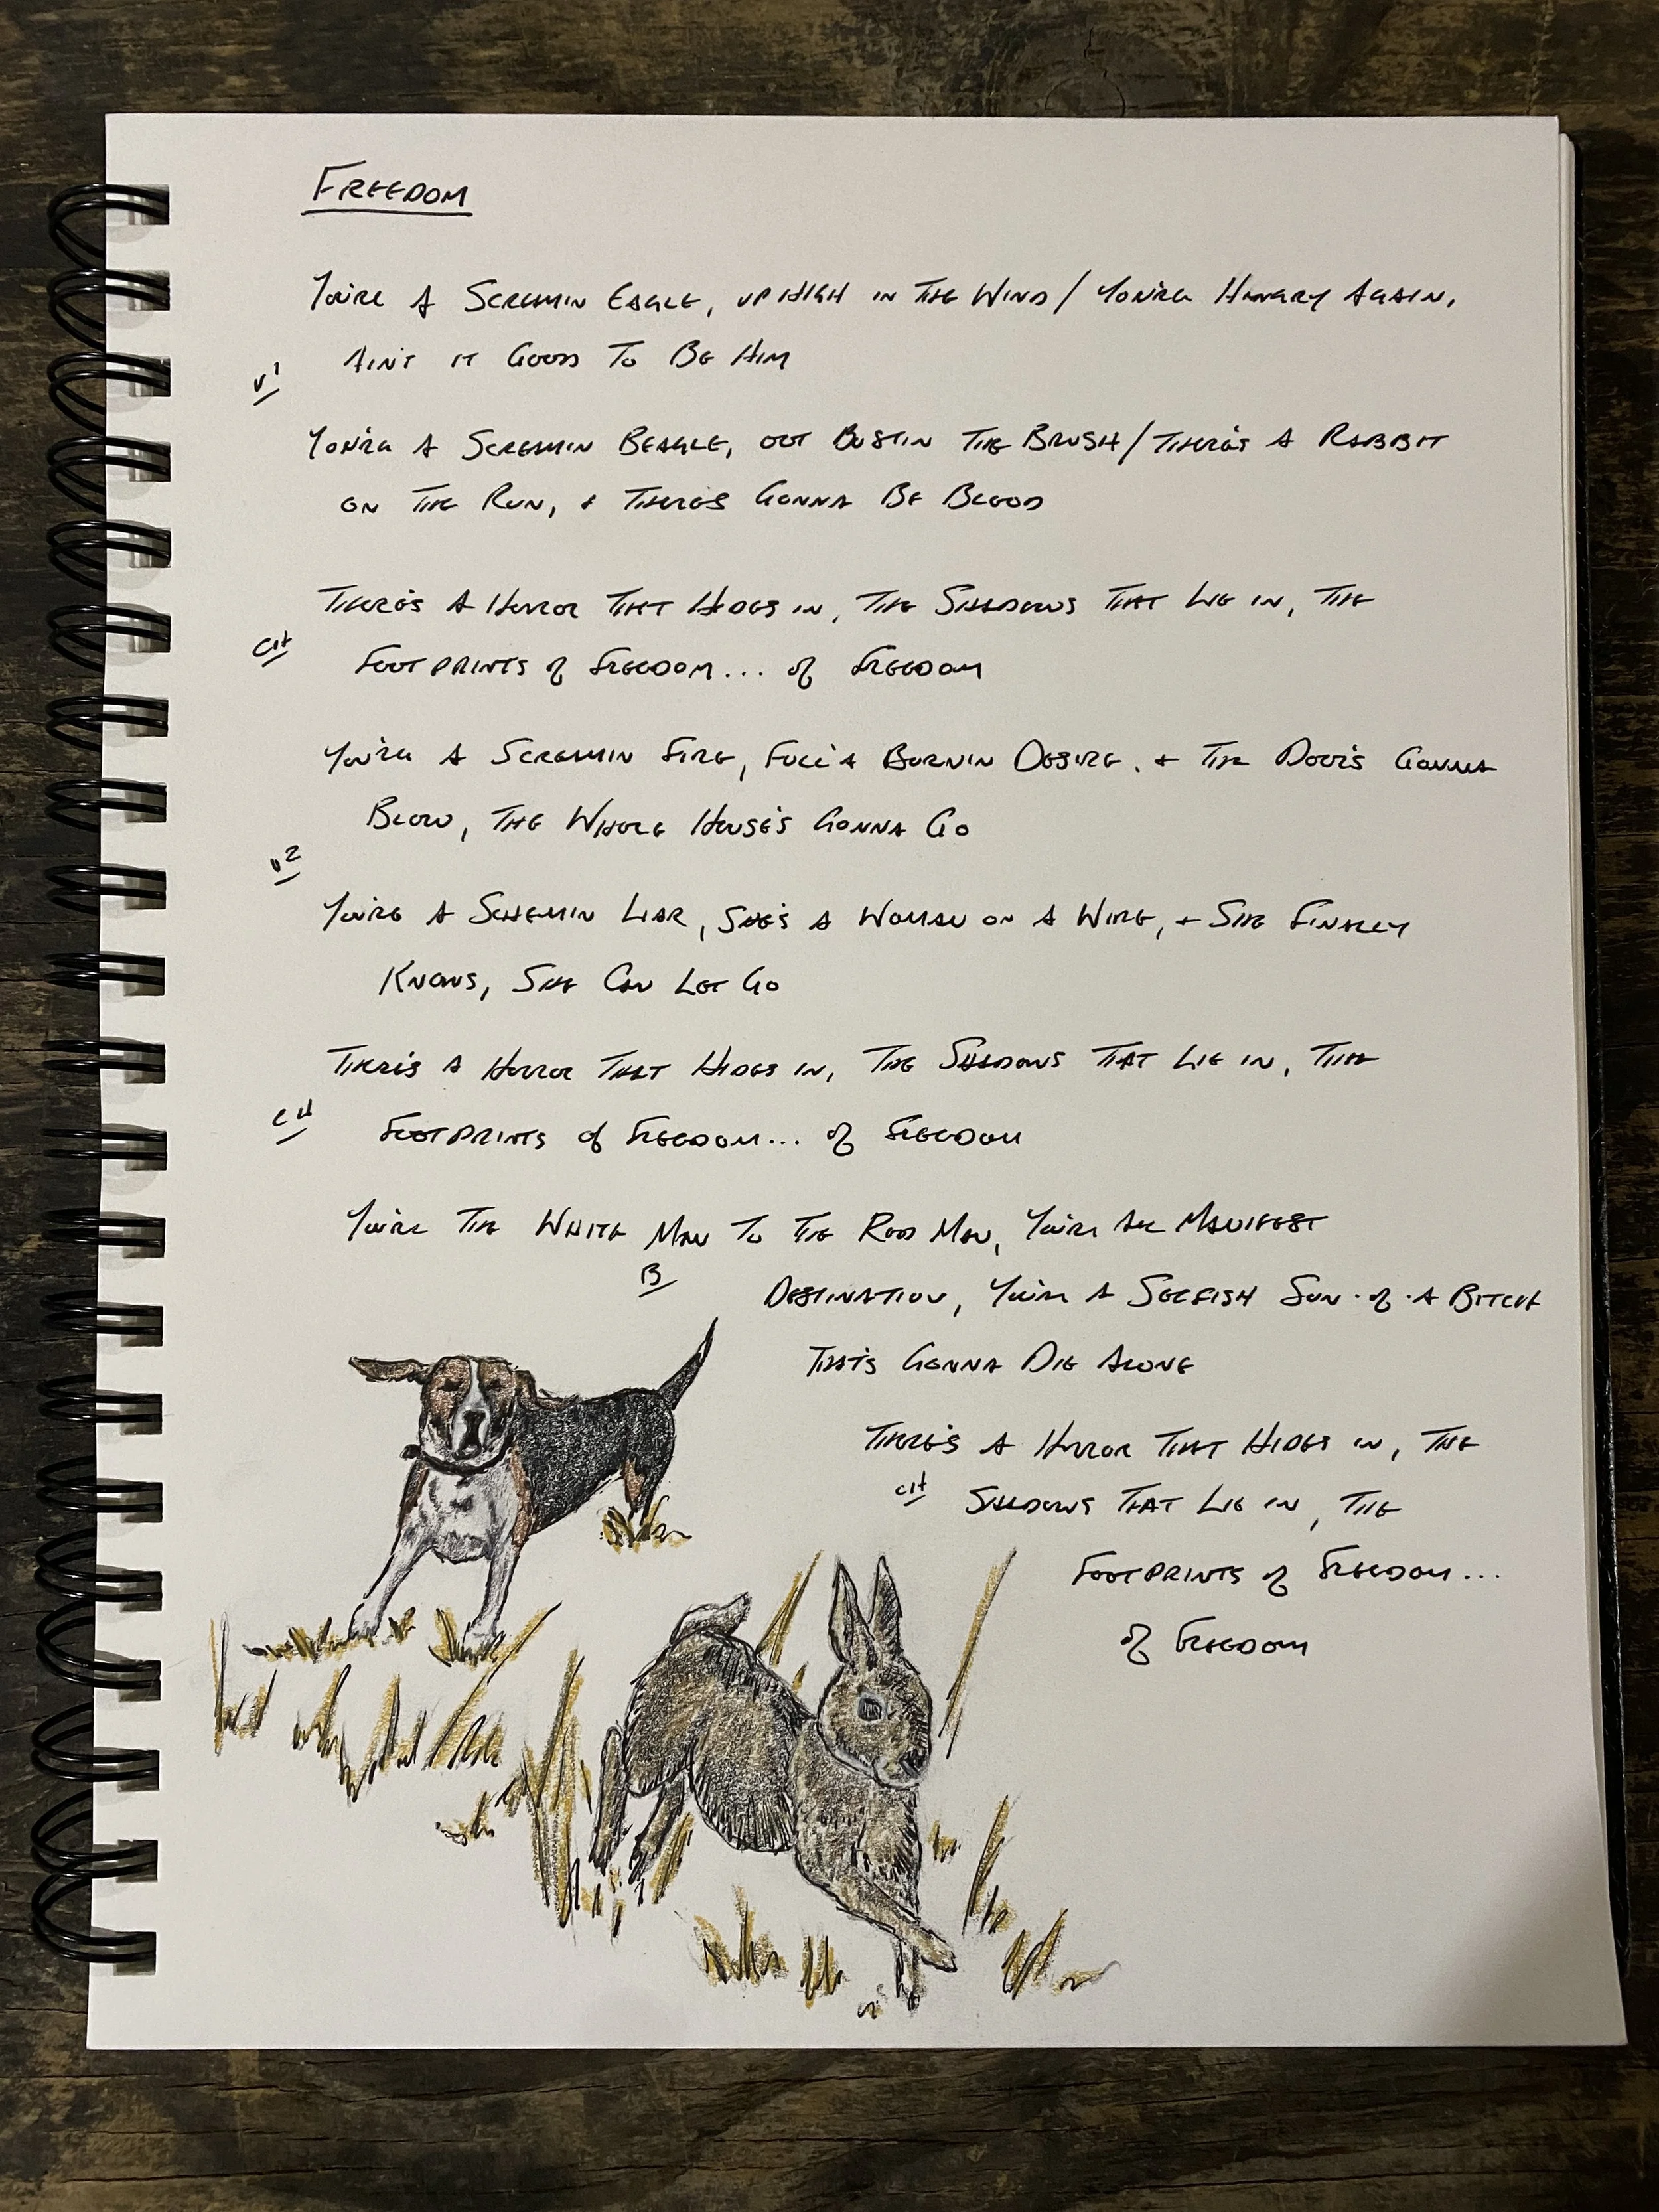 FREEDOM
You're A Screamin Eagle, up high in The Wind / You're Hungry Again,
Ain't it Good To Be Him
V1
You're A Screamin Beagle, out Bustin The Brush / There's A Rabbit
on The Run, + There's Gonna Be Blood
There's A Horror That Hides in, The Shadows That Lie in, The
CH
Footprints of Freedom... of Freedom
You're A Screamin Fire, Full'a Burnin Desire, + The Door's Gonna
Blow, The Whole House's Gonna Go
V2
You're A Schemin Liar, She's A Woman on A Wire, + She Finally
Knows, She Can Let Go
There's A Horror That Hides in, The Shadows That Lie in, The
CH
Footprints of Freedom... of Freedom
You're The White Man To The Red Man, You're All Manifest
B
Destination, You're A Selfish Son-of-A Bitch
That's Gonna Die Alone
There's A Horror That Hides in, The
CH
Shadows That Lie in, The
Footprints of Freedom...
of Freedom